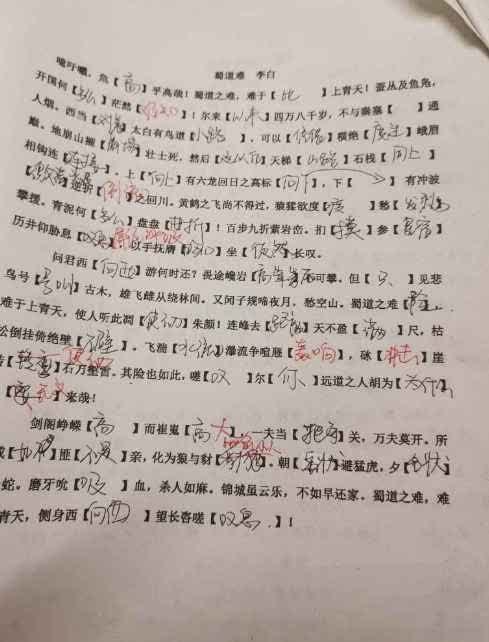 蜀道难 李白
噫吁嚱，危【高】乎高哉！蜀道之难，难于【比】上青天！蚕丛及鱼凫，
开国何【多么】茫然【】！尔来【以来】四万八千岁，不与秦塞【】通
人烟。西当【对着】太白有鸟道【小路】，可以【】横绝【度过】峨眉
巅。地崩山摧【崩塌】壮士死，然后【这以后】天梯【山路】石栈【同上】
相钩连【连接】。上【向上】有六龙回日之高标【】，下【】有冲波
【】逆折【】之回川。黄鹤之飞尚不得过，猿猱欲度【度】愁【】
攀援。青泥何【多么】盘盘【曲折】！百步九折萦岩峦。扪【摸】参【星宿】
历井仰胁息【】以手抚膺【】坐【】长叹。
问君西【向西】游何时还？畏途巉岩【】不可攀。但【只】见悲
鸟号【号叫】古木，雄飞雌从绕林间。又闻子规啼夜月，愁空山。蜀道之难【】，
难于上青天，使人听此凋【使】朱颜！连峰去【】天不盈【满】尺，枯
松倒挂倚绝壁【】。飞湍【水流】瀑流争喧豗【轰响】，砯【撞击】崖
转【】石万壑雷。其险也如此，嗟【叹】尔【你】远道之人胡为【为什么】
【】来哉！
剑阁峥嵘【高】而崔嵬【高大】，一夫当【把守】关，万夫莫开。所
或【如果】匪【不是】亲，化为狼与豺【】。朝【】避猛虎，夕【】
蛇。磨牙吮【吸】血，杀人如麻。锦城虽云乐，不如早还家。蜀道之难，难
青天，侧身西【向西】望长咨嗟【叹息】！